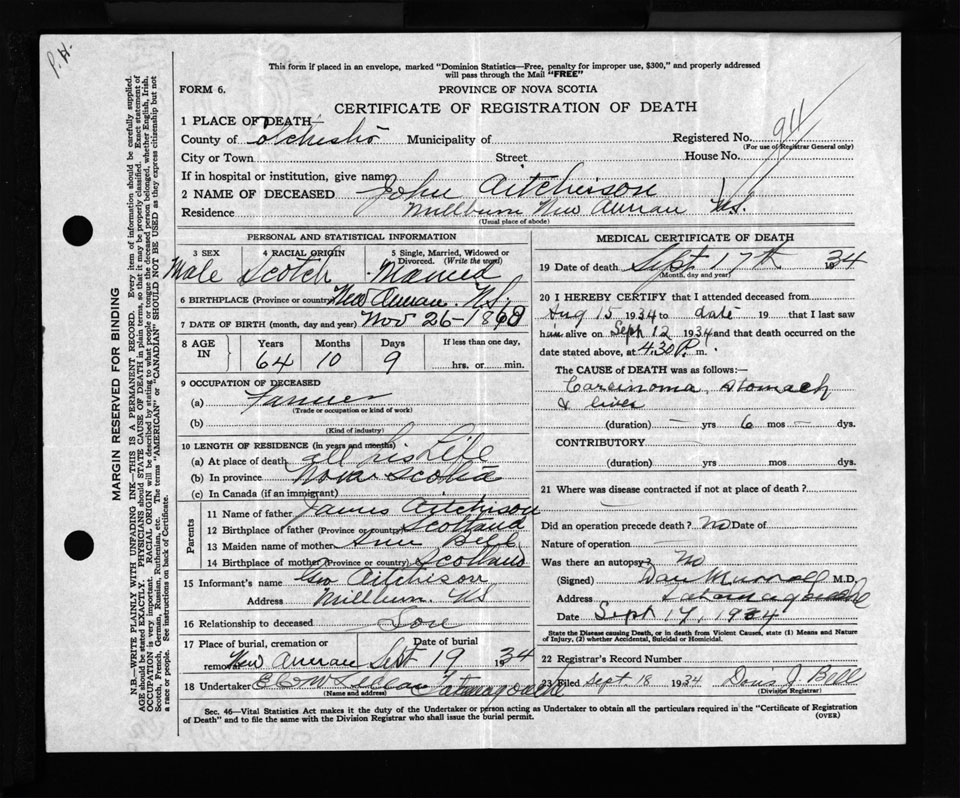 P. H.
This form if placed in an envelope, marked "Dominion Statistics—Free, penalty for improper use, $300," and properly addressed
will pass through the Mail "FREE"
FORM 6.
PROVINCE OF NOVA SCOTIA
CERTIFICATE OF REGISTRATION OF DEATH
1 PLACE OF DEATH—
County of Colchester Municipality of Registered No. 911
(For use of Registrar General only)
City or Town Street House No.
If in hospital or institution, give name
2 NAME OF DECEASED John Aitchison
Residence Millburn New Annan N.S.
(Usual place of abode)
PERSONAL AND STATISTICAL INFORMATION
3 SEX 4 RACIAL ORIGIN 5 Single, Married, Widowed or
Divorced. (Write the word)
Male Scotch Married
6 BIRTHPLACE (Province or country) New Annan. N.S.
7 DATE OF BIRTH (month, day and year) Nov 26-1869
8 AGE IN Years Months Days If less than one day,
64 10 9 hrs. or min.
9 OCCUPATION OF DECEASED
(a) Farmer
(Trade or occupation or kind of work)
(b)
(Kind of industry)
10 LENGTH OF RESIDENCE (in years and months)
(a) At place of death all his Life
(b) In province Nova Scotia
(c) In Canada (if an immigrant)
Parents
11 Name of father James Aitchison
12 Birthplace of father (Province or country) Scotland
13 Maiden name of mother Ann Bell
14 Birthplace of mother (Province or country) Scotland
15 Informant's name Geo Aitchison
Address Millburn N.S
16 Relationship to deceased Son
17 Place of burial, cremation or Date of burial
removal New Annan Sept 19 1934
18 Undertaker Tatamagouche
(Name and address)
MEDICAL CERTIFICATE OF DEATH
19 Date of death Sept 17th 1934
(Month, day and year)
20 I HEREBY CERTIFY that I attended deceased from
Aug 15 1934 to date 19 that I last saw
him alive on Sept 12 1934 and that death occurred on the
date stated above, at 4.30 P. m.
The CAUSE of DEATH was as follows:—
Carcinoma, stomach
& liver
(duration) — yrs 6 mos — dys.
CONTRIBUTORY
(duration) yrs. mos. dys.
21 Where was disease contracted if not at place of death?
Did an operation precede death? No Date of
Nature of operation
Was there an autopsy? No
(Signed) Dan Murray M.D.
Address Tatamagouche
Date Sept 17, 1934
State the Disease causing Death, or in death from Violent Causes, state (1) Means and Nature
of Injury, (2) whether Accidental, Suicidal or Homicidal.
22 Registrar's Record Number
23 Filed Sept. 18 1934 Doris J. Bell
(Division Registrar)
Sec. 46—Vital Statistics Act makes it the duty of the Undertaker or person acting as Undertaker to obtain all the particulars required in the "Certificate of Registration
of Death" and to file the same with the Division Registrar who shall issue the burial permit.
(OVER)
MARGIN RESERVED FOR BINDING
N.B.—WRITE PLAINLY WITH UNFADING INK—THIS IS A PERMANENT RECORD. Every item of information should be carefully supplied.
AGE should be stated EXACTLY. PHYSICIANS should STATE CAUSE OF DEATH in plain terms, so that it may be properly classified. Exact statement of
OCCUPATION is very important. RACIAL ORIGIN will be described by stating to what people or tongue the deceased person belonged, whether English, Irish,
Scotch, French, German, Russian, Ruthenian, etc. The terms "AMERICAN" or "CANADIAN" SHOULD NOT BE USED as they express citizenship but not
a race or people. See instructions on back of Certificate.